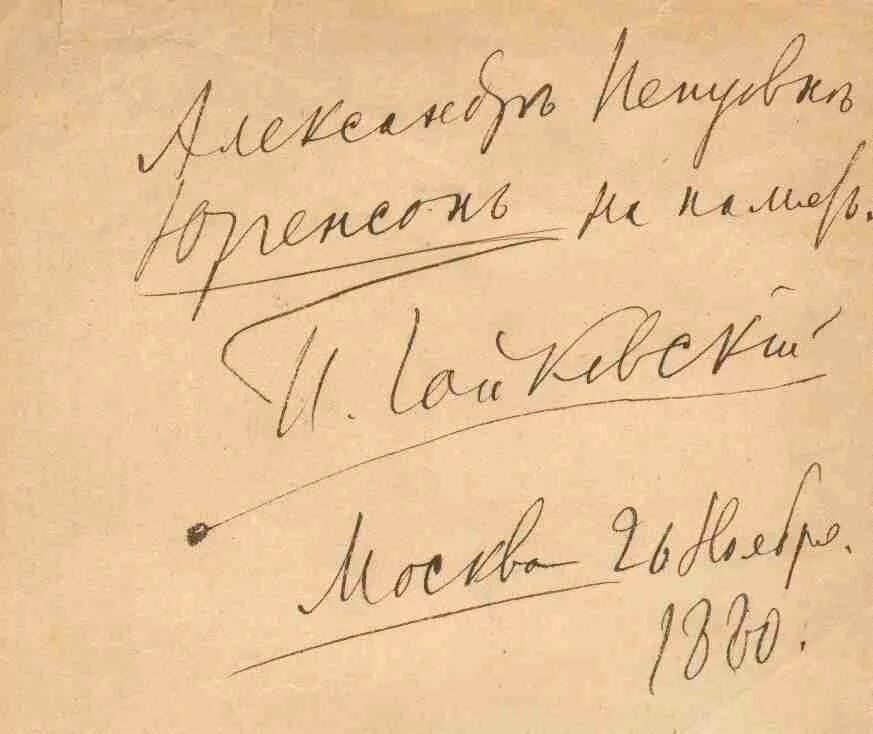 Александрѣ Петровнѣ
Юргенсонъ на память.
П. Чайковскій
Москва 26 Ноября.
1880.